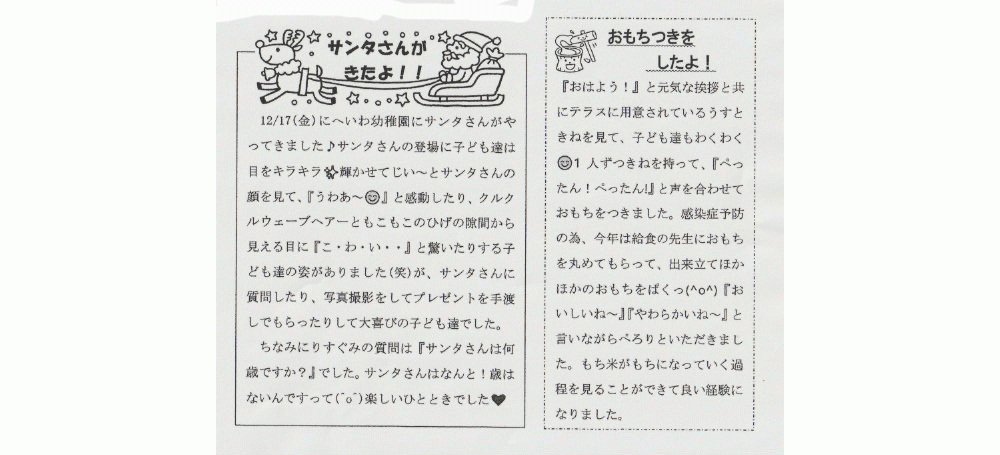 サンタさんが
きたよ！！
12/17(金)にへいわ幼稚園にサンタさんがや
ってきました♪サンタさんの登場に子ども達は
目をキラキラ✨輝かせてじい～とサンタさんの
顔を見て、『うわあ～😊』と感動したり、クルク
ルウェーブヘアーともこもこのひげの隙間から
見える目に『こ・わ・い・・』と驚いたりする子
ども達の姿がありました(笑)が、サンタさんに
質問したり、写真撮影をしてプレゼントを手渡
しでもらったりして大喜びの子ども達でした。
ちなみにりすぐみの質問は『サンタさんは何
歳ですか？』でした。サンタさんはなんと！歳は
ないんですって(^o^)楽しいひとときでした♥
おもちつきを
したよ！
『おはよう！』と元気な挨拶と共
にテラスに用意されているうすと
きねを見て、子ども達もわくわく
😊1 人ずつきねを持って、『ぺっ
たん！ぺったん!』と声を合わせて
おもちをつきました。感染症予防
の為、今年は給食の先生におもち
を丸めてもらって、出来立てほか
ほかのおもちをぱくっ(^o^)『お
いしいね～』『やわらかいね～』と
言いながらぺろりといただきまし
た。もち米がもちになっていく過
程を見ることができて良い経験に
なりました。